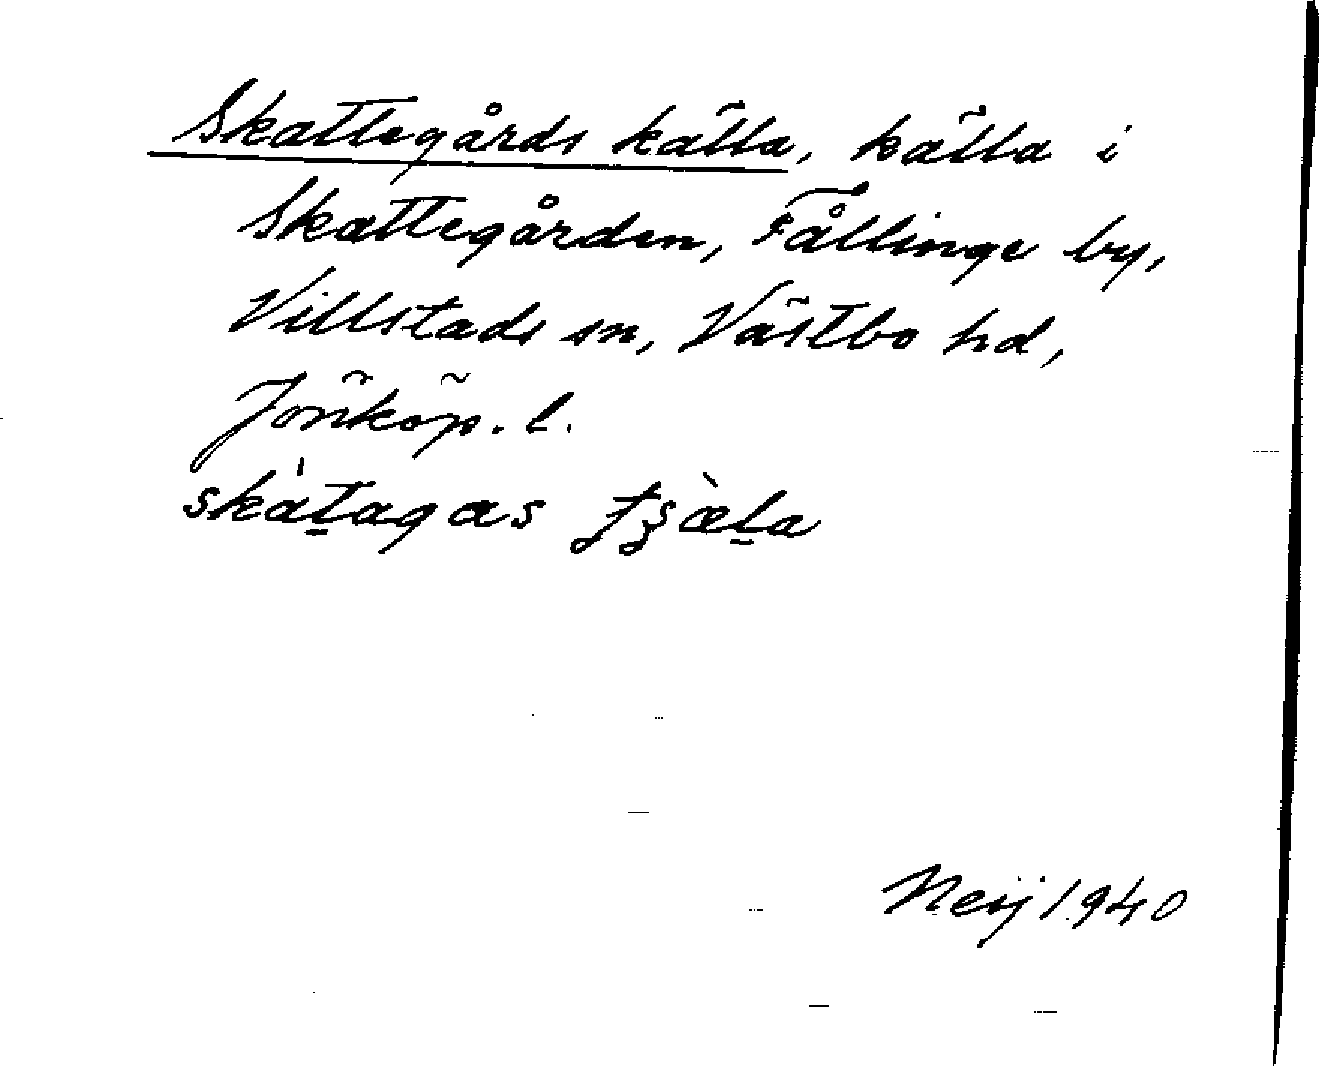 Skattegårds källa, källa i
Skattegården, Fållinge by,
Villstads sn, Västbo hd,
Jönköp. l.
skàt̠agas
Neij 1940